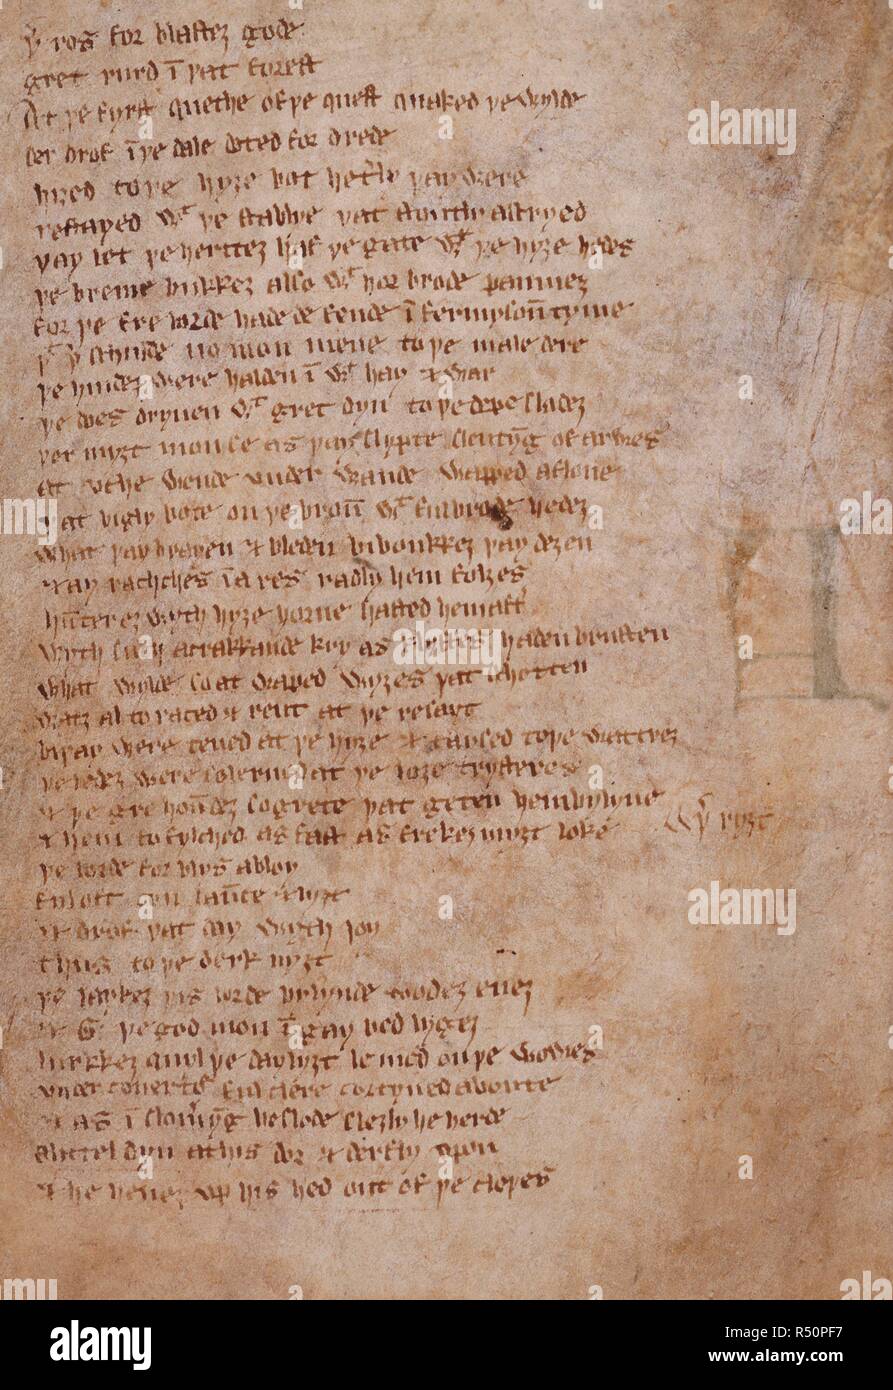 þ ros for blastez gode
gret rurd ī þat forest
At þe fyrst quethe of þe quest quaked þe wylde
der drof ī þe dale doted for drede
hiȝed to þe hyȝe bot het'ly þay were
restayed wᵗ þe stablye þat stoutly ascryed
þay let þe herttez haf þe gate wᵗ þe hyȝe hedes
þe breme bukkez also wᵗ hor brode paumez
for þe fre lorde hade de fende ī fermysoūn tyme
þᵗ þ' schulde no mon meue to þe male dere
þe hindez were halden ī wᵗ hay & war
þe does dryuen wᵗ gret dyn to þe depe sladez
þer myȝt mon se as þay slypte slentyng of arwes
at vche wende vnder wande wapped a flone
þat bigly bote on þe broūn wᵗ ful brode hedez
what þay brayen & bleden bi bonkkez þay deȝen
& ay rachches ī a res radly hem folȝes
hūnterez wyth hyȝe horne hasted hem aft'
wyth such a crakkande kry as klyffes haden brusten
what wylde so at waped wyȝes þat schotten
watz al to raced & rent at þe resayt
bi þay were tened at þe hyȝe & taysed to þe wattrez
þe ledez were so lerned at þe loȝe trysteres
& þe gre hoūndez so grete þat geten hem bylyue
& hem to fylched as fast as frekez myȝt loke þ' ryȝt
þe lorde for blys abloy
ful oft con laūnce & lyȝt
& drof þat day wyth joy
thus to þe derk nyȝt
þꝰ laykez þis lorde by lynde wodez euez
& G. þe god mon ī gay bed lygez
lurkkez quyl þe daylyȝt lemed on þe wowes
vnder couerto' ful clere cortyned aboute
& as ī slom'yng he slode sleȝly he herde
a littel dyn at his dor & derfly vpon
& he heuez vp his hed out of þe cloþes
alamy
Image ID: R50PF7
www.alamy.com